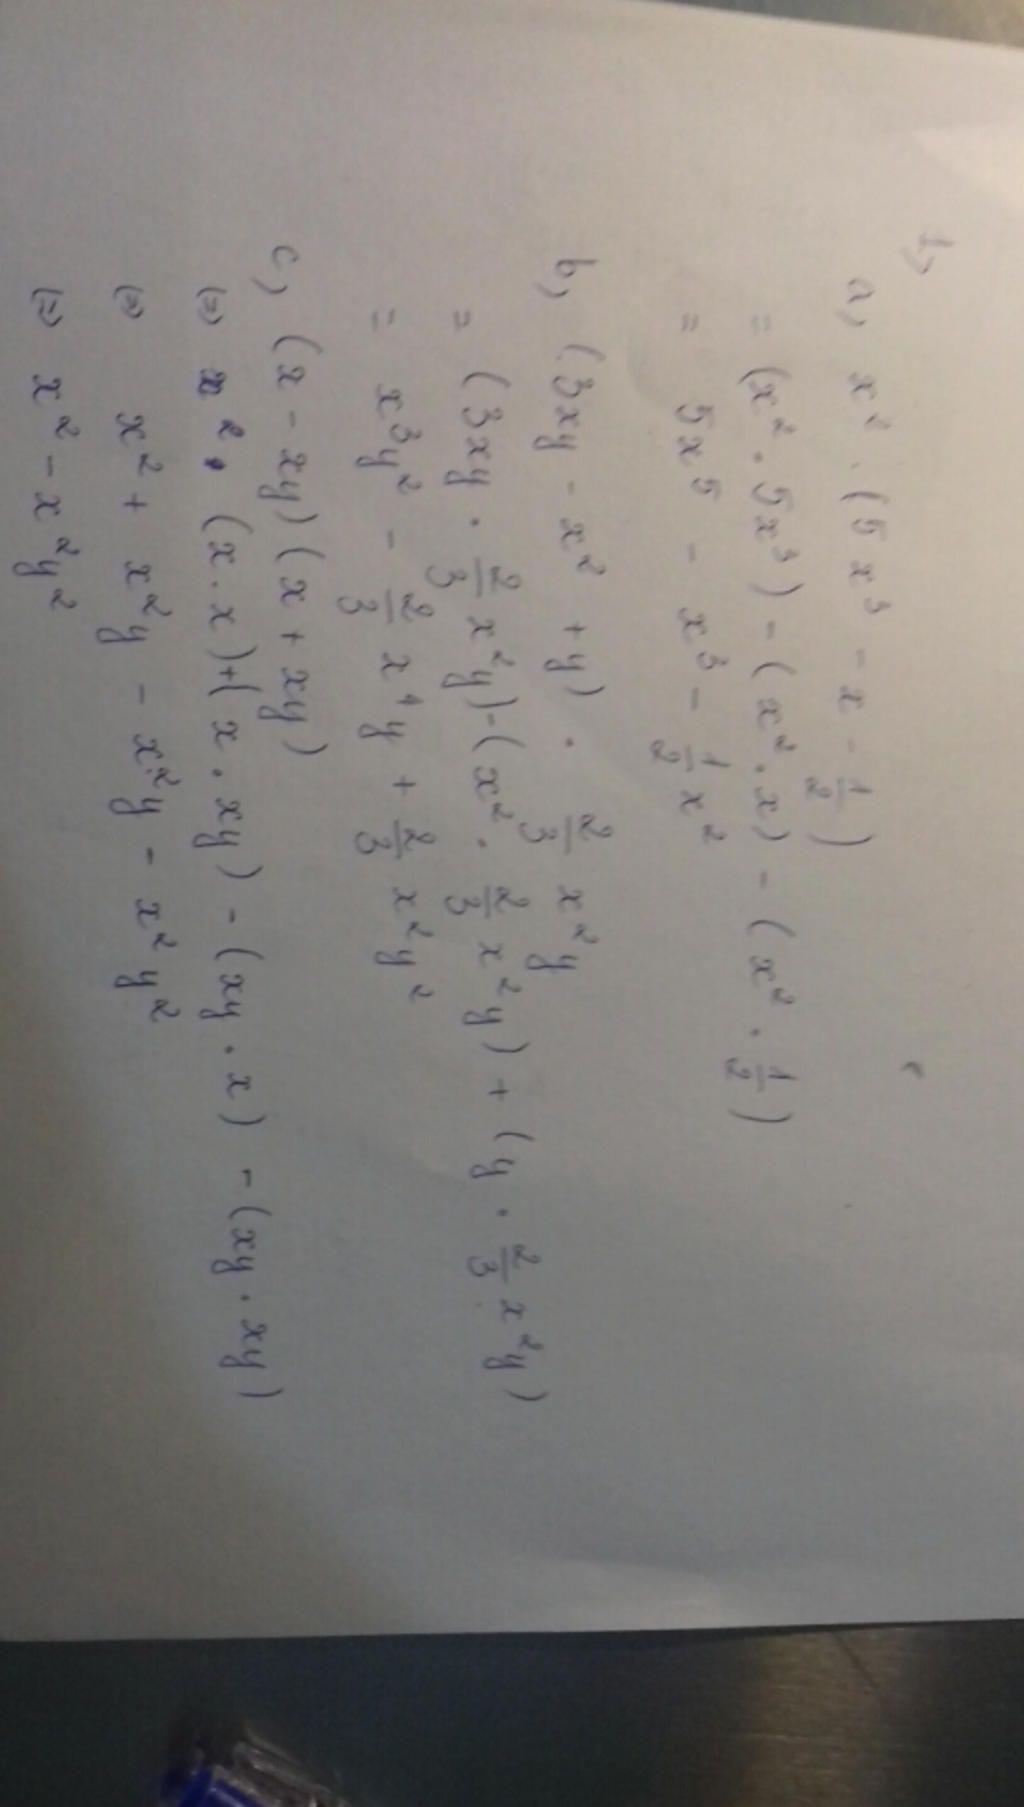 1,
a, x² . (5x³ - x - 1/2)
= (x² . 5x³) - (x² . x) - (x² . 1/2)
= 5x⁵ - x³ - 1/2 x²
b, (3xy - x² + y) . 2/3 x²y
= (3xy . 2/3 x²y) - (x² . 2/3 x²y) + (y . 2/3 x²y)
= x³y² - 2/3 x⁴y + 2/3 x²y²
c, (x - xy)(x + xy)
(=) (x . x) + (x . xy) - (xy . x) - (xy . xy)
(=) x² + x²y - x²y - x²y²
(=) x² - x²y²